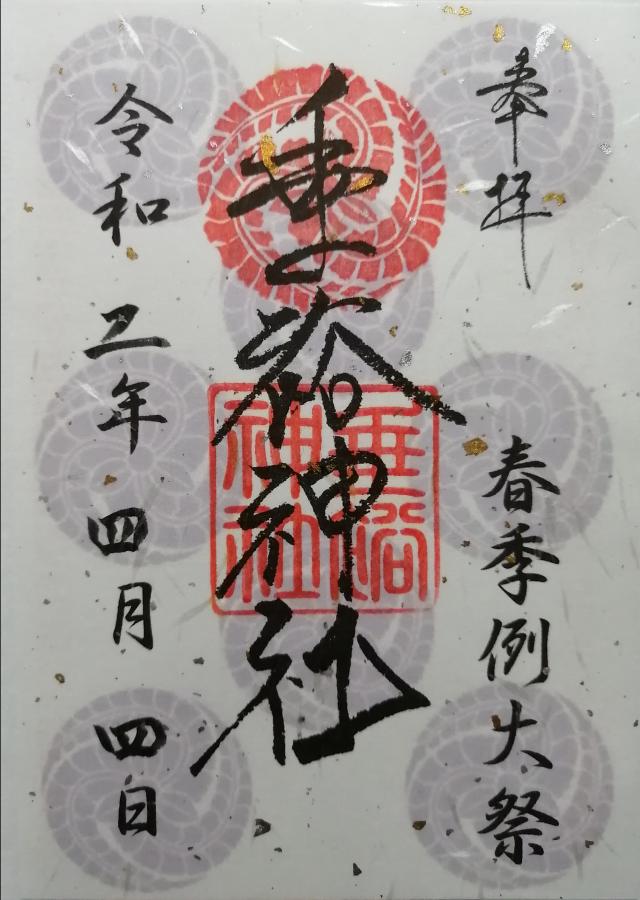 奉拝 春季例大祭
垂裕神社
垂裕
神社
令和二年四月四日